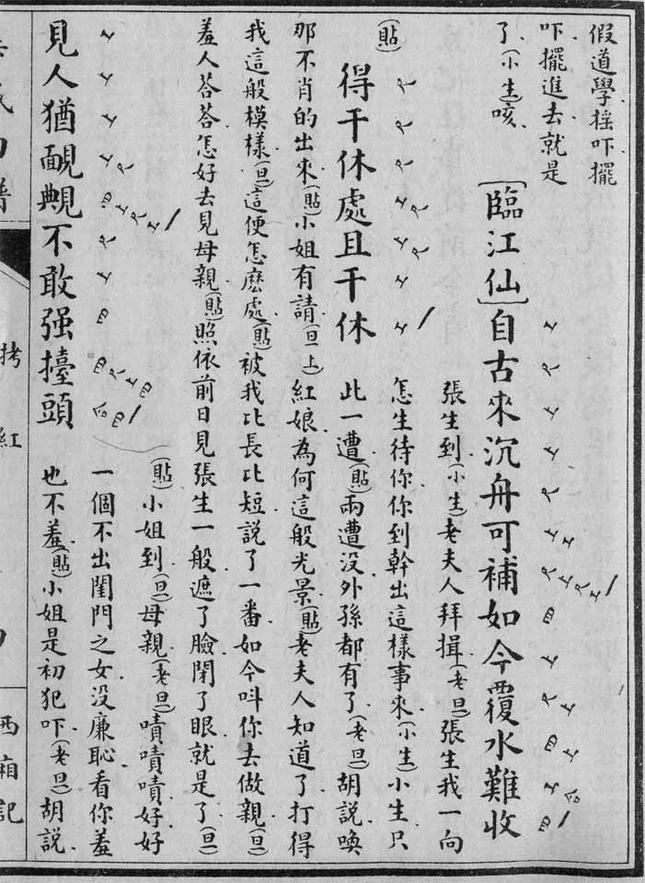 假道學搖吓擺
吓擺進去就是
了(小生)咳
〔臨江仙〕自古來沉舟可補如今覆水難收
張生到(小生)老夫人拜揖(老旦)張生我一向
怎生待你你到幹出這樣事來(小生)小生只
(貼)得干休處且干休
此一遭(貼)兩遭没外孫都有了(老旦)胡説喚
那不肖的出來(貼)小姐有請(旦上)紅娘為何這般光景(貼)老夫人知道了打得
我這般模樣(旦)這便怎麽處(貼)被我比長比短説了一番如今呌你去做親(旦)
羞人荅荅怎好去見母親(貼)照依前日見張生一般遮了臉閉了眼就是了(旦)
見人猶靦覥不敢强擡頭
(貼)小姐到(旦)母親(老旦)嘖嘖嘖好好
一個不出閨門之女没廉恥看你羞
也不羞(貼)小姐是初犯吓(老旦)胡説
拷紅
西廂記